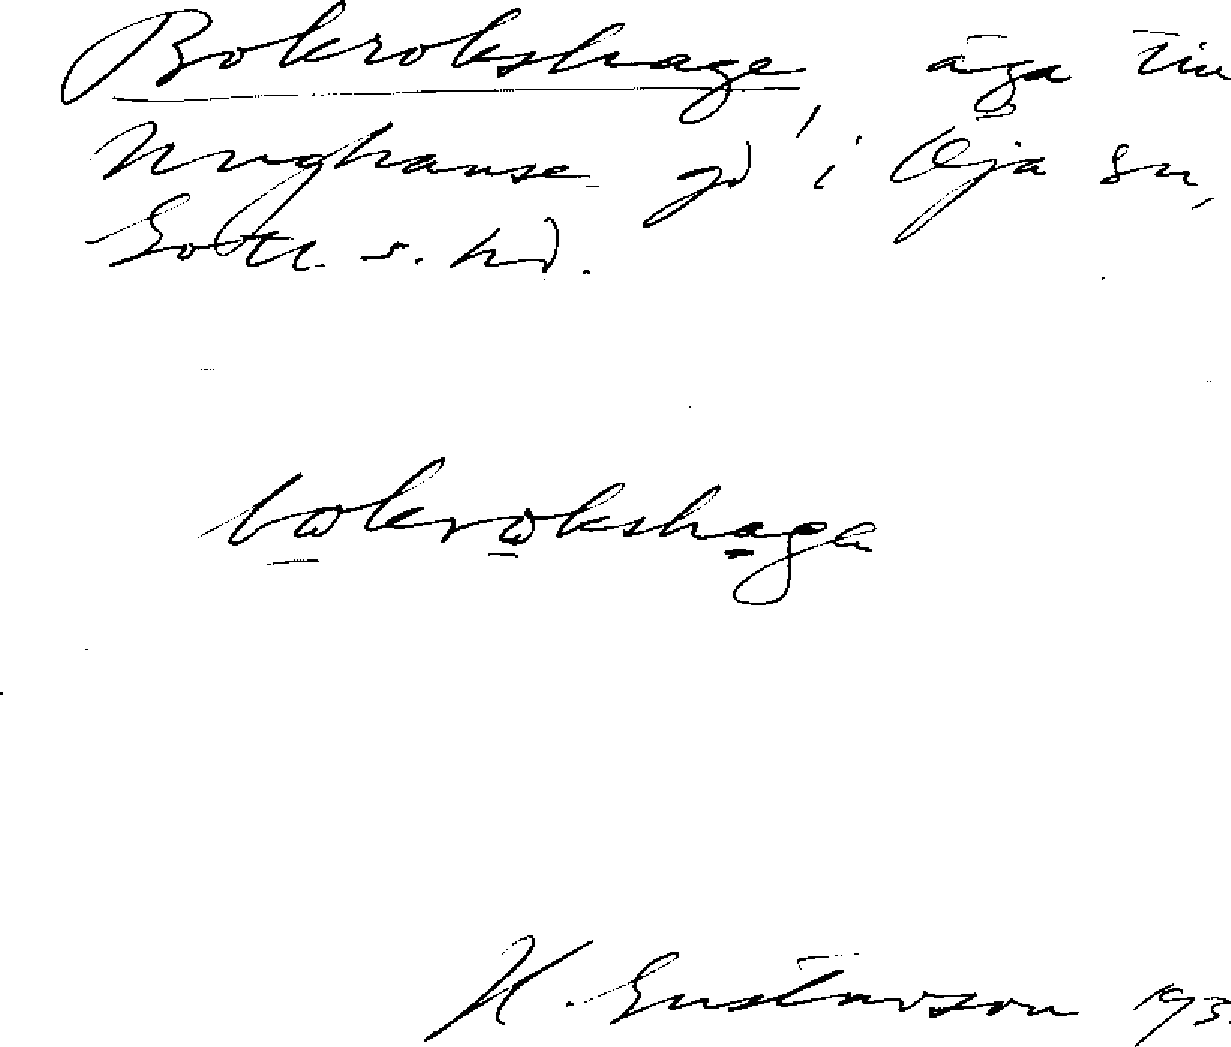 Bokrokshage, äga till
Unghanse gd i Öja sn,
Gotl. s. hd.
bωkrωkshaga
H. Gustavson 193